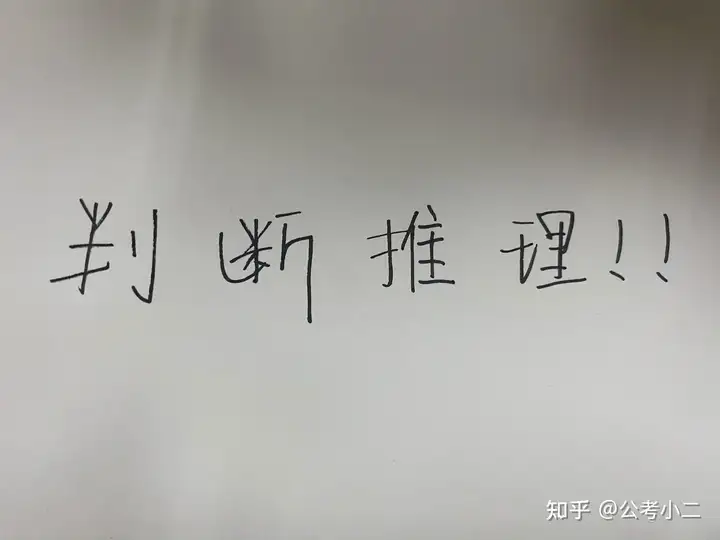 判断推理!!
知乎 @公考小二